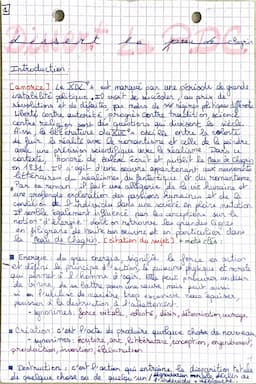 1
Dissert La peau de chagrin
Introduction :
[amorce] Le XIXe s est marqué par une période de grande
instabilité politique. Il voit se succéder, au prix de
révolutions et de pas moins de sept régimes politiques différents
Liberté contre autorité, progrès contre tradition, science
contre religion sont des questions qui divisent le siècle.
Ainsi, la littérature du XIXe s oscille entre la volonté
de fuir la réalité avec le romantisme et celle de la peindre
avec une précision scientifique avec le réalisme. Dans ce
contexte, Honoré de Balzac écrit et publie La Peau de Chagrin
en 1831. Il s'agit d'une œuvre appartenant aux mouvements
littéraires du réalisme, du fantastique et du romantisme.
Par ce roman, il fait une allégorie de la vie humaine et
une profonde exploration des passions humaines et de la
condition de l'individu dans une société en pleine mutation.
Il semble également influencé par les conceptions sur la
notion d'énergie : dont on retrouve les grandes lignes
en filigrane de toute son œuvre et en particulier dans
La Peau de Chagrin. [citation du sujet] + mots clés :
Energie : du grec energia, signifie la force en action
et désigne le principe d'action, la puissance physique et morale
qui permet à l'homme d'agir. Elle peut
de vivre, de se battre pour une cause mais peut aussi
si on l'utilise de manière trop excessive nous épuiser,
pousser à la destruction, à l'
synonymes : force vitale, volonté, désir, détermination, courage.
Création : c'est l'acte de produire quelque chose de nouveau
synonymes : écriture, art, littérature, conception, engendrement,
production, invention, élaboration
Destruction : c'est l'action qui entraîne la disparition totale
de quelque chose ou de quelqu'un / dégradation morale, déclin de
l'individu